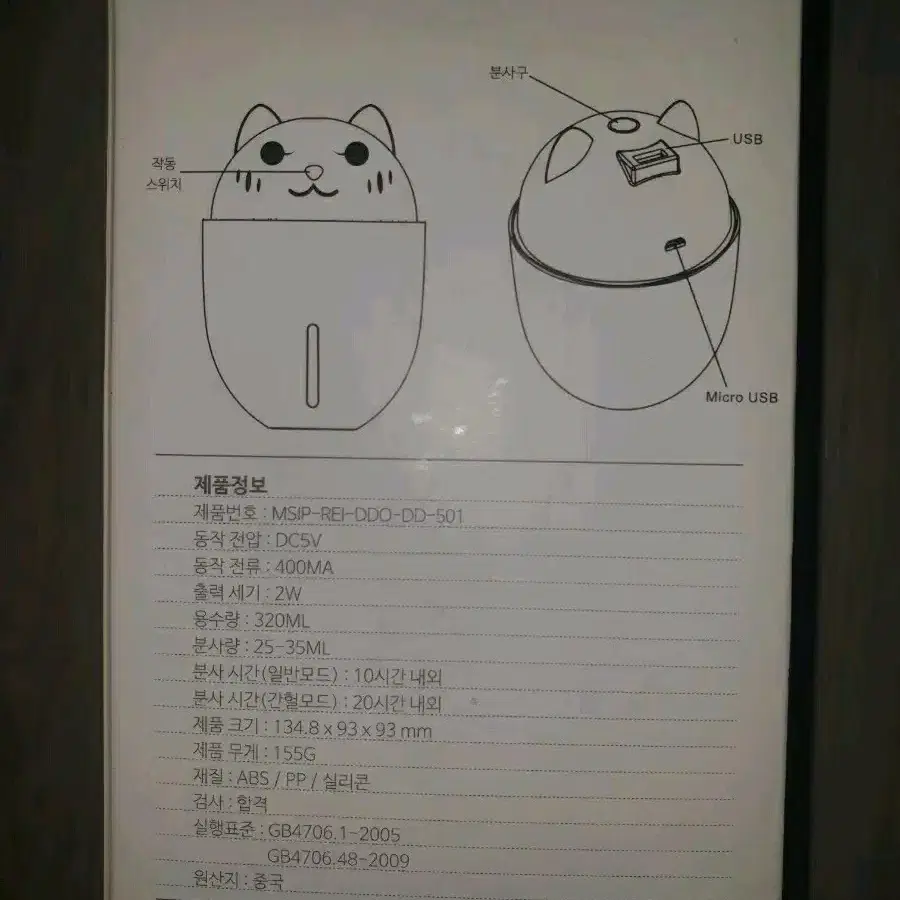 분사구
USB
작동
스위치
Micro USB
제품정보
제품번호 : MSIP-REI-DDO-DD-501
동작 전압 : DC5V
동작 전류 : 400MA
출력 세기 : 2W
용수량 : 320ML
분사량 : 25-35ML
분사 시간(일반모드) : 10시간 내외
분사 시간(간헐모드) : 20시간 내외
제품 크기 : 134.8 x 93 x 93 mm
제품 무게 : 155G
재질 : ABS / PP / 실리콘
검사 : 합격
실행표준 : GB4706.1-2005
GB4706.48-2009
원산지 : 중국